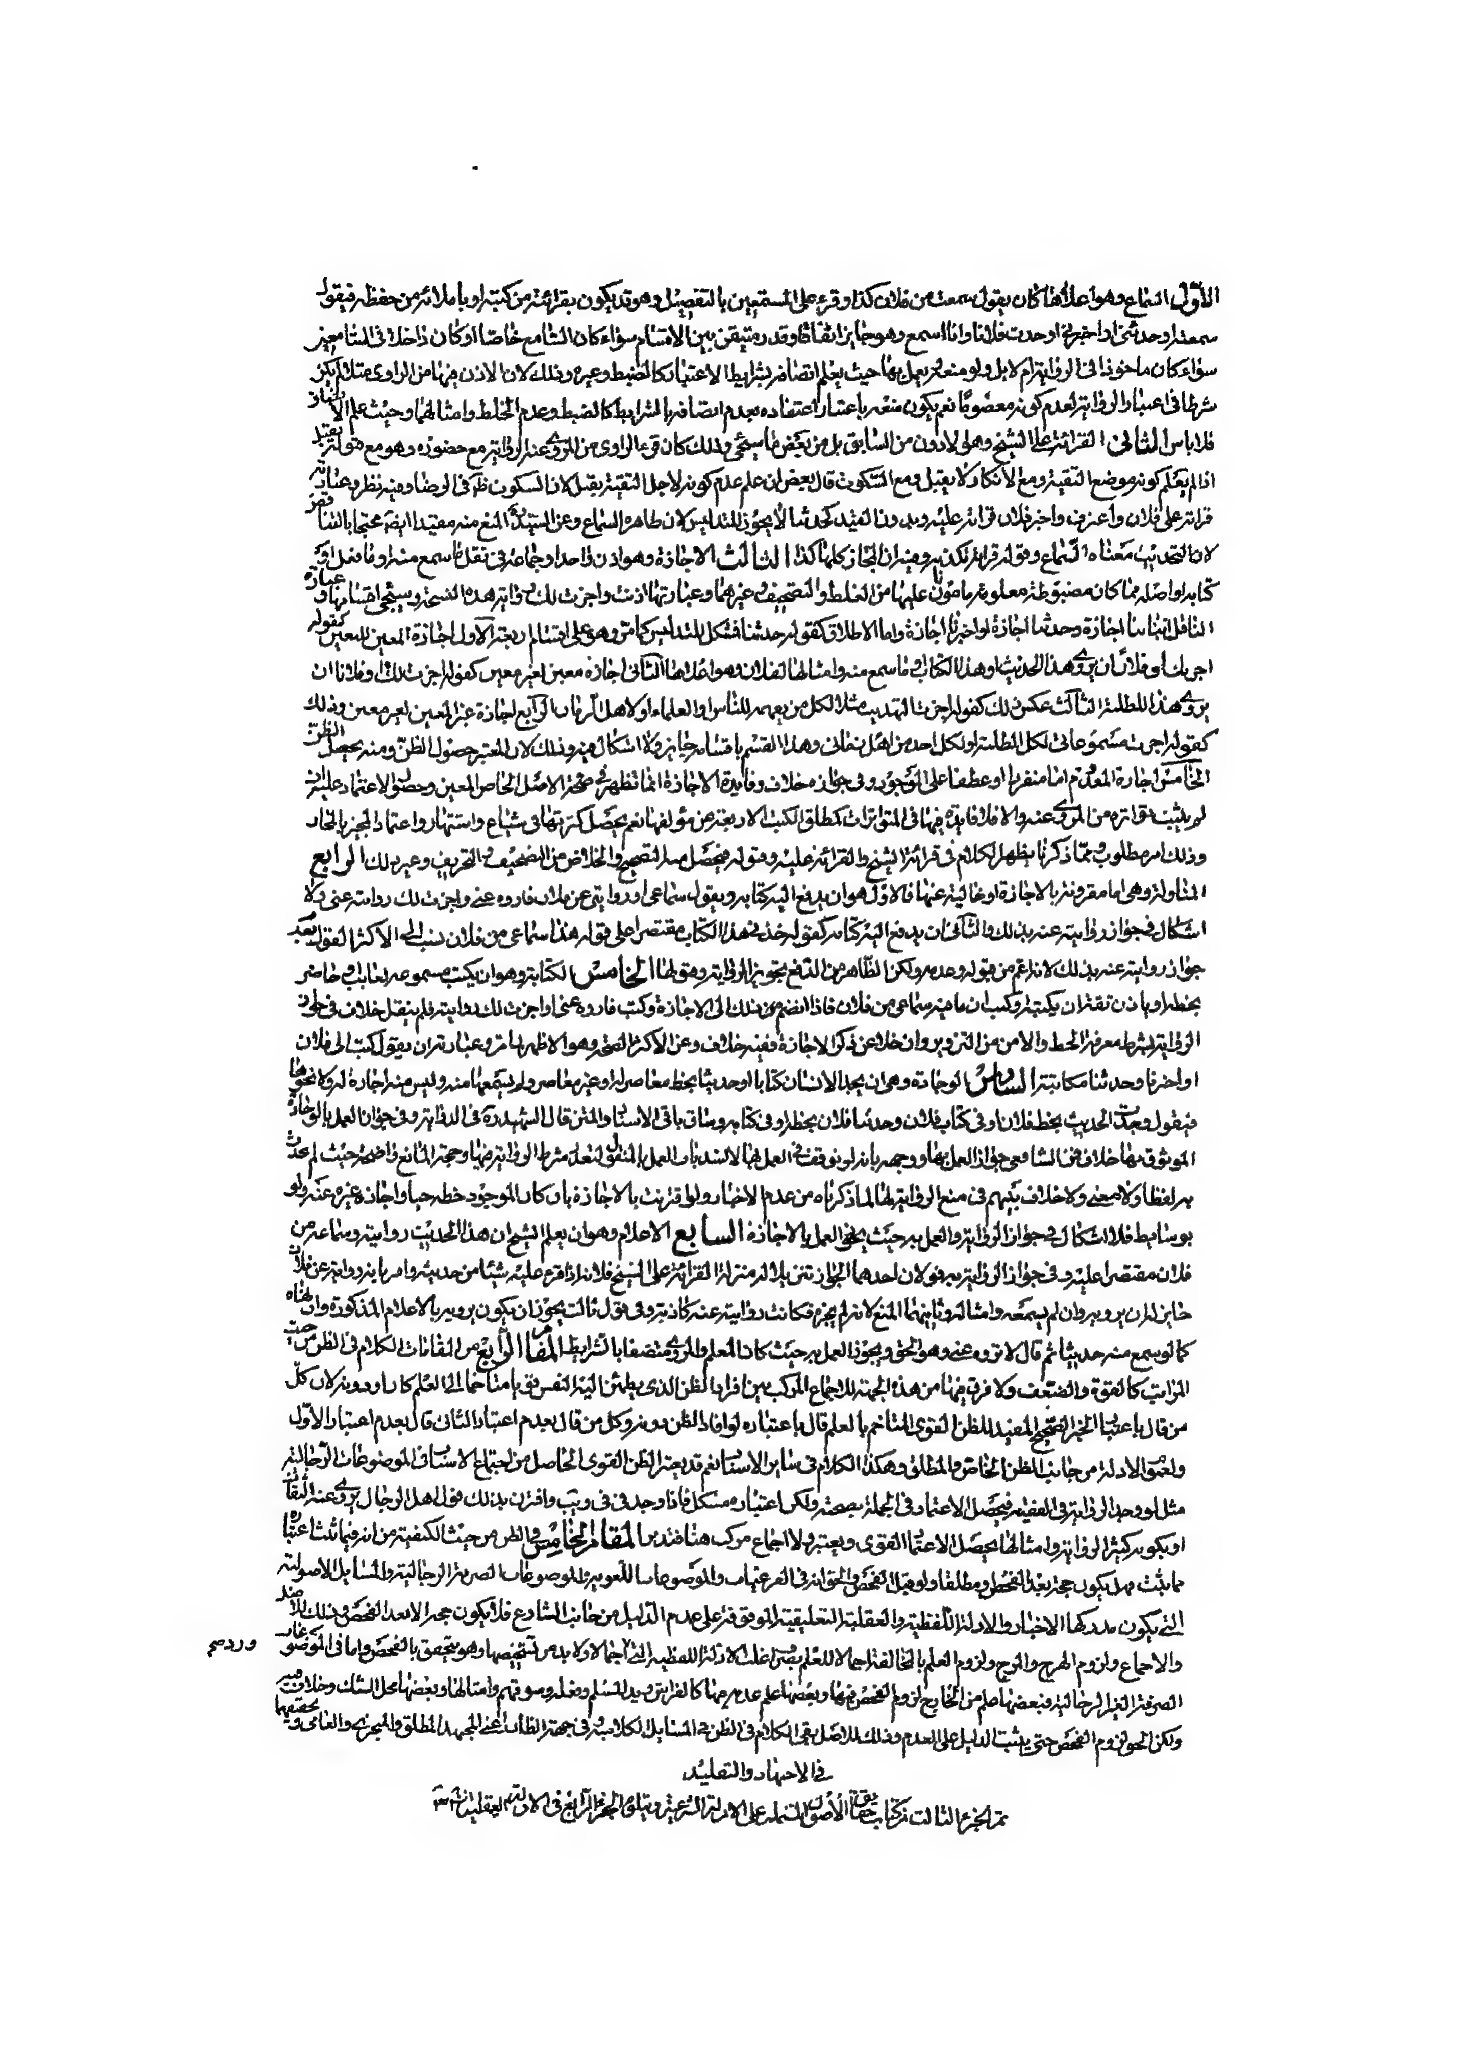 الاوّل السماع وهو اعلاها كان يقول سمعت من فلان كذا وقرء على المستمعين بالتفصيل وهو قد يكون بقرائته من كتبه او باملائه من حفظه فيقول
سمعته او حدثنى او اخبرنى او حدث فلانا وانا اسمع وهو جايز اتفاقا وقدر متيقن بين الاقسام سواء كان السامع خاصا او كان داخلا فى السامعين
سواء كان ماخوذا فى الرواية ام لا بل ولو منعه يعمل بها حيث يعلم اتصافه بشرايط الاعتبار كالضبط وغيره وذلك لان الاذن من الراوى مثلا لم يكن
شرطا فى اعتبار الرواية لعدم كونه معصوما نعم يكون منعه باعتبار اعتقاده بعدم اتصافه بالشرايط كالضبط وعدم الخلط وامثالهما وحيث علم الاجتماع
فلا باس الثانى القرائة على الشيخ وهو الادون من السابق بل من بعض ما سيجئ وذلك كان قرء الراوى من المروى عنه الرواية مع حضوره وهو مع قوله به يعتبر
اذا لم يعلم كونه موضع التقية ومع الانكار لا يقبل ومع السكوت قال بعض ان علم عدم كونه لاجل التقية يقبل لان السكوت ظ فى الرضا وفيه نظر وعبارته
قرائة على فلان واعترف واخبر فلان قرائة عليه وبدون القيد كحدثنا لا يجوز للتدليس لان ظاهره السماع وعن السيد المنع منه مقيدا ايضا محتجا بالتناقض
لان التحديث معناه السماع وقوله قرائة تكذيبه وفيه ان المجاز كلها كذا الثالث الاجازة وهو اذن واحد او جماعة فى نقل ما سمع منه او ما نقل او
كتابه او اصله مما كان مضبوطة معلومة مامونا عليها من الغلط والتصحيف وغيرهما وعبارتها اذنت واجزت لك رواية هذه النسخة وسيجئ اقسامها وعبارة
الناقل انبانا اجازة وحدثنا اجازة او اخبرنا اجازة واما الاطلاق كقوله حدثنا فمشكل للتدليس كما مر وهو على اقسام اربعة الاول اجازة المعين للمعين كقوله
اجزتك او فلانا ان يروى هذا الحديث او هذا الكتاب او ما سمع منه وامثالها لفلان وهو اعلاها الثانى اجازة معين لغير معين كقوله اجزت لك او فلانا ان
يروى هذا للطلبة الثالث عكس ذلك كقوله اجزت التهذيب مثلا لكل من يعهمه للناس او العلماء او لاهل الزمان الرابع اجازة غير المعين لغير معين وذلك
كقوله اجزت مسموعاتى لكل الطلبة او لكل احد من اهل زمانى وهذا القسم باقسامه جايز ولا اشكال فيه وذلك لان المعتبر حصول الظن ومنه يحصل الظن
الخامس اجازة المعدوم اما منفردا او عطفا على الموجود وفى جوازه خلاف وفايدة الاجازة انما تظهر فى صحة الاصل الخاص المعين وحصول الاعتماد عليه ان
لم يثبت تواتره من المروى عنه والا فلا فايدة فيها فى المتواترات كمطلق الكتب الاربعة عن مؤلفها نعم يحصل كثرتها فى شياع واشتهار واعتماد المجيز بالمجاز
وذلك امر مطلوب ومما ذكرنا يظهر الكلام فى قرائة الشيخ والقرائة عليه وقوله فيحصل منها التصحيح والخلاص من التصحيف والتحريف وغير ذلك الرابع
المناولة وهى اما مقرونة بالاجازة او خالية عنها فالاول هو ان يدفع اليه كتابه ويقول سماعى او روايتى عن فلان فاروه عنى واجزت لك روايته عنى ولا
اشكال فى جواز روايته عنه بذلك والثانى ان يدفع اليه كتابه كقوله خذ هذا الكتاب مقتصرا على قوله هذا سماعى من فلان نسب الى الاكثر القول بعدم
جواز روايته عنه بذلك لانه اعم من قوله وعدمه ولكن الظاهر من الدفع تجويز الرواية وقولها الخامس الكتابة وهو ان يكتب مسموعه لغايب او حاضر
بخطه او ياذن ثقة ان يكتبه او كتب ان ما فيه سماعى من فلان فاذا انضم من ذلك الى الاجازة وكتب فاروه عنى او اجزت لك روايته فلم ينقل خلاف فى جواز
الرواية بشرط معرفة الخط والامن من التزوير وان خلا عن ذكر الاجازة ففيه خلاف وعن الاكثر الصحة وهو الاظهر لما مر وعبارته ان يقول كتب الى فلان
او اخبرنا وحدثنا مكاتبة السادس الوجادة وهى ان يجد الانسان كتابا او حديثا بخط معاصر له او غير معاصر ولم يسمعها منه وليس منه اجازة له ولا نحوها
فيقول وجدت الحديث بخط فلان او فى كتاب فلان وحدثنا فلان بخطه او فى كتابه وساق باقى الاسناد والمتن قال الشهيد ره فى الدراية وفى جواز العمل بالوجادة
الموثوق بها خلاف فعن الشافعى جواز العمل بها ووجهه بانه لو توقف العمل فيها لانسد باب العمل بالمنقول لتعذر شرط الرواية فيها وحجة المانع واضحة حيث لم يحدث
به لفظا ولا معنى ولا خلاف بينهم فى منع الرواية بها لما ذكرناه من عدم الاخبار ولو اقترنت بالاجازة بان كان الموجود خطه حيا واجازه غيره عنه ولو
بوسايط فلا اشكال فى جواز الرواية والعمل به حيث يجوز العمل بالاجازة السابع الاعلام وهو ان يعلم الشيخ ان هذا الحديث روايته وسماعه من
فلان مقتصرا عليه وفى جواز الرواية به قولان احدهما الجواز تنزيلا له منزلة القرائة على الشيخ فلانه اذا قرء عليه شيئا من حديثه واقر بانه روايته عن فلان
جاز له ان يرويه وان لم يسمعه وامثاله وثانيهما المنع لانه لم يجزه فكانت روايته عنه كاذبة وفى قول ثالث يجوز ان يكون يرويه بالاعلام المذكورة وان نهاه
كما لو سمع منه حديثا ثم قال لا تروه عنى وهو الحق ويجوز العمل به حيث كان المعلم والمروى متصفا بالشرايط المقام الرابع من المقامات الكلام فى الظن من حيث
المراتب كالقوة والضعف ولا فرق فيها من هذه الجهة للاجماع المركب بين افراد الظن الذى يطمئن اليه النفس بقى ما متاخما الى العلم كان او دونه لان كل
من قال باعتبار الخبر الصحيح المفيد للظن القوى المتاخم بالعلم قال باعتباره لو افاد الظن دونه وكل من قال بعدم اعتبار الثانى قال بعدم اعتبار الاول
ولعموم الادلة من جانب الظن الخاص والمطلق وهكذا الكلام فى ساير الاسباب نعم قد يعتبر الظن القوى الحاصل من اجتماع الاسباب فى الموضوعات الرجالية
مثل لو وجد الرواية فى الفقيه فيحصل الاعتماد فى الجملة بصحته ولكن اعتباره مشكل فاذا وجد فى فى ويب واقترن بذلك قول اهل الرجال يروى عنه الثقات
او يكون كثير الرواية وامثالها يحصل الاعتماد القوى ويعتبر ولا اجماع مركب هنا فتدبر المقام الخامس فى الظن من حيث الكيفية من انه فيما ثبت اعتباره
مما يثبت فهل يكون حجة بعد الفحص او مطلقا ولو قبل الفحص والحق انه فى الفرعيات والموضوعات اللغوية والموضوعات الصرفة الرجالية والمسايل الاصولية
التى يكون مدركها الاخبار والادلة اللفظية والعقلية التعليقية الموقوفة على عدم الدليل من جانب الشارع فلا يكون حجة الا بعد الفحص وذلك للاصل
والاجماع ولزوم الهرج والمرج ولزوم العلم بالمخالفة اجمالا للعلم بتغير اغلب الادلة اللفظية اجمالا ولا بد من تشخيصها وهو يتحقق بالفحص واما فى الموضوعات
الصرفة الغير الرجالية فبعضها علم من الخارج لزوم الفحص فيها وبعضها علم عدمه منها كالفراش ويد المسلم وفعله وسوقهم وامثالها وبعضها محل الشك وخلاف فيه
ولكن الحق لزوم الفحص حتى يثبت الدليل على العدم وذلك للاصل بقى الكلام فى الظن فى المسايل الكلامية وفى جهة الظان اعنى المجتهد المطلق والمتجزى والعامى وتحقيقهما
فى الاجتهاد والتقليد
تم الجزء الثالث من كتاب حقايق الاصول المشتملة على الادلة الشرعية ويتلوه الجزء الرابع فى الادلة العقلية